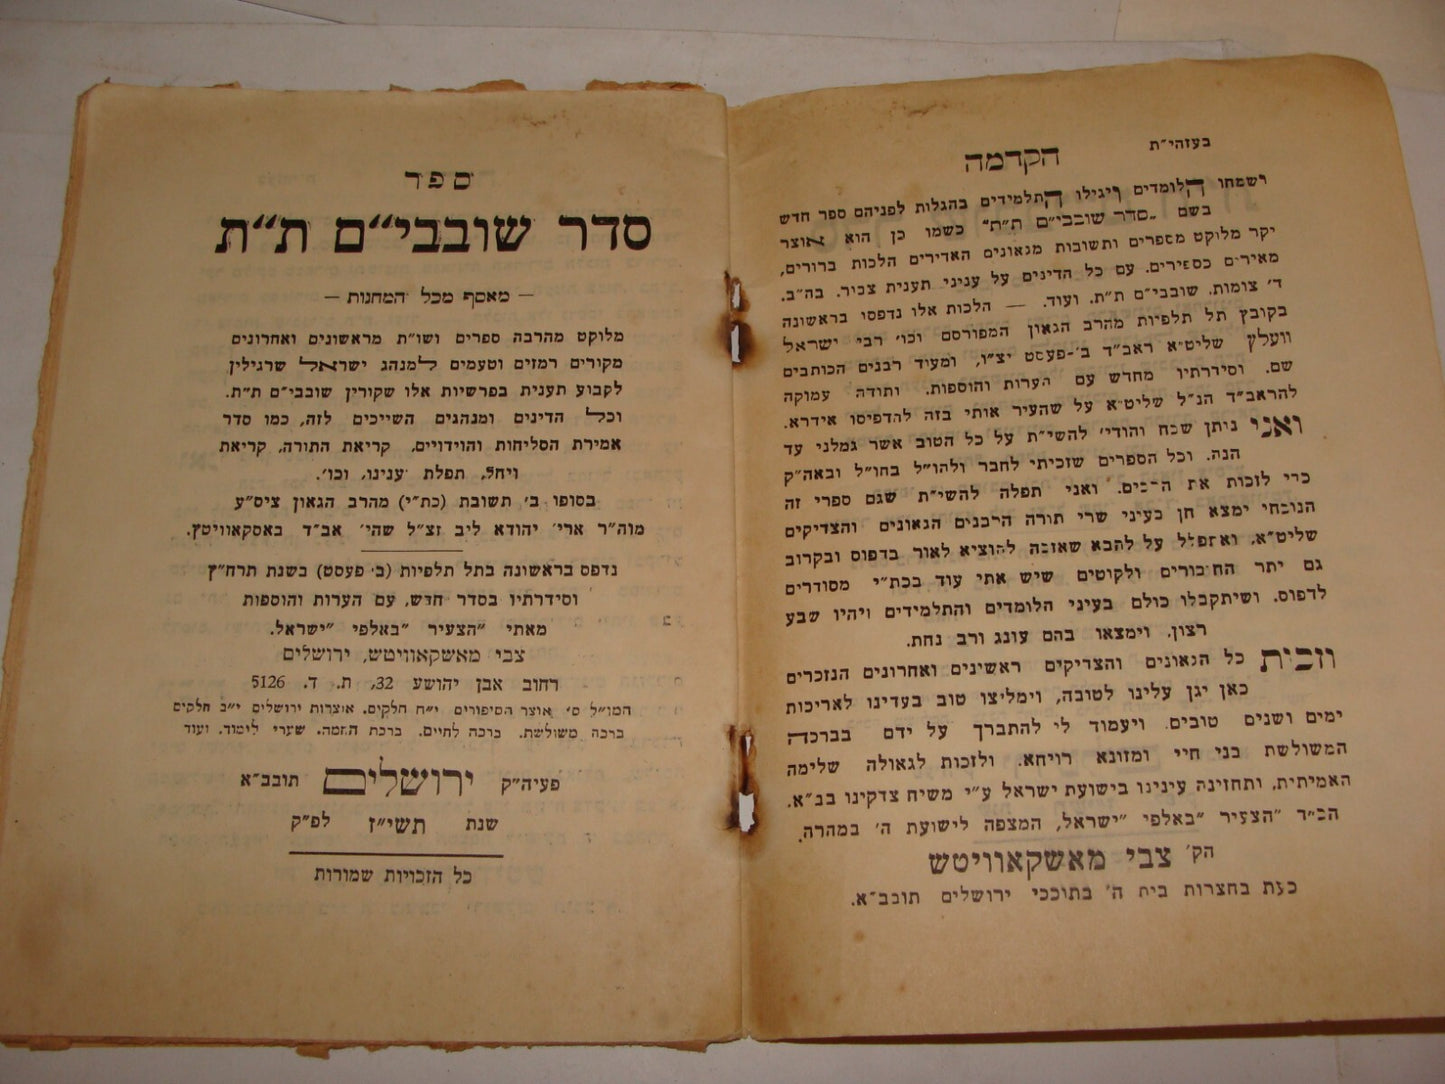 בעזהי״ת
הקדמה
וישמחו הלומדים ויגילו התלמידים בהגלות לפניהם ספר חדש
בשם „סדר שובבי״ם ת״ת״ כשמו כן הוא אוצר
יקר מלוקט מספרים ותשובות מגאונים האדירים הלכות ברורים,
מאירים כספירים. עם כל הדינים על עניני תענית צבור. בה״ב.
ד׳ צומות. שובבי״ם ת״ת. ועוד. — הלכות אלו נדפסו בראשונה
בקובץ תל תלפיות מהרב הגאון המפורסם וכו׳ רבי ישראל
וועלץ שליט״א ראב״ד ב׳-פעסט יצ״ו, ומעוד רבנים הכותבים
שם. וסידרתיו מחדש עם הערות והוספות. ותודה עמוקה
להראב״ד הנ״ל שליט״א על שהעיר אותי בזה להדפיסו אידרא.
ואני ניתן שבח והודי׳ להשי״ת על כל הטוב אשר גמלני עד
הנה. וכל הספרים שזכיתי לחבר ולהו״ל בחו״ל ובאה״ק
כדי לזכות את הרבים. ואני תפלה להשי״ת שגם ספרי זה
הנוכחי ימצא חן בעיני שרי תורה הרבנים הגאונים והצדיקים
שליט״א, ואתפלל על להבא שאזכה להוציא לאור בדפוס ובקרוב
גם יתר החיבורים ולקוטים שיש אתי עוד בכת״י מסודרים
לדפוס. ושיתקבלו כולם בעיני הלומדים והתלמידים ויהיו שבע
רצון. וימצאו בהם עונג ורב נחת.
וזכית כל הגאונים והצדיקים ראשינים ואחרונים הנזכרים
כאן יגן עלינו לטובה, וימליצו טוב בעדינו לאריכות
ימים ושנים טובים. ויעמוד לי להתברך על ידם בברכה
המשולשת בני חיי ומזונא רויחא. ולזכות לגאולה שלימה
האמיתית, ותחזינה עינינו בישועת ישראל ע״י משיח צדקינו בב״א.
הכ״ד ״הצעיר ״באלפי ״ישראל, המצפה לישועת ה׳ במהרה.
הק׳ צבי מאשקאוויטש
כעת בחצרות בית ה׳ בתוככי ירושלים תובב״א.
ספר
סדר שובבי״ם ת״ת
— מאסף מכל המחנות —
מלוקט מהרבה ספרים ושו״ת מראשונים ואחרונים
מקורים רמזים וטעמים למנהג ישראל שרגילין
לקבוע תענית בפרשיות אלו שקורין שובבי״ם ת״ת.
וכל הדינים ומנהגים השייכים לזה, כמו סדר
אמירת הסליחות והוידויים, קריאת התורה, קריאת
ויחל, תפלת ענינו, וכו׳.
בסופו ב׳ תשובת (כת״י) מהרב הגאון ציס״ע
מוה״ר ארי׳ יהודא ליב זצ״ל שהי׳ אב״ד באסקאוויטץ.
נדפס בראשונה בתל תלפיות (ב׳ פעסט) בשנת תרח״ץ
וסידרתיו בסדר חדש, עם הערות והוספות
מאתי ״הצעיר ״באלפי ״ישראל.
צבי מאשקאוויטש, ירושלים
רחוב אבן יהושע 32, ת. ד. 5126
המו״ל ס׳ אוצר הסיפורים י״ח חלקים. אוצרות ירושלים י״ב חלקים
ברכה משולשת. ברכה לחיים. ברכת החמה. שערי לימוד. ועוד
פעיה״ק ירושלים תובב״א
שנת תשי״ז לפ״ק
כל הזכויות שמורות